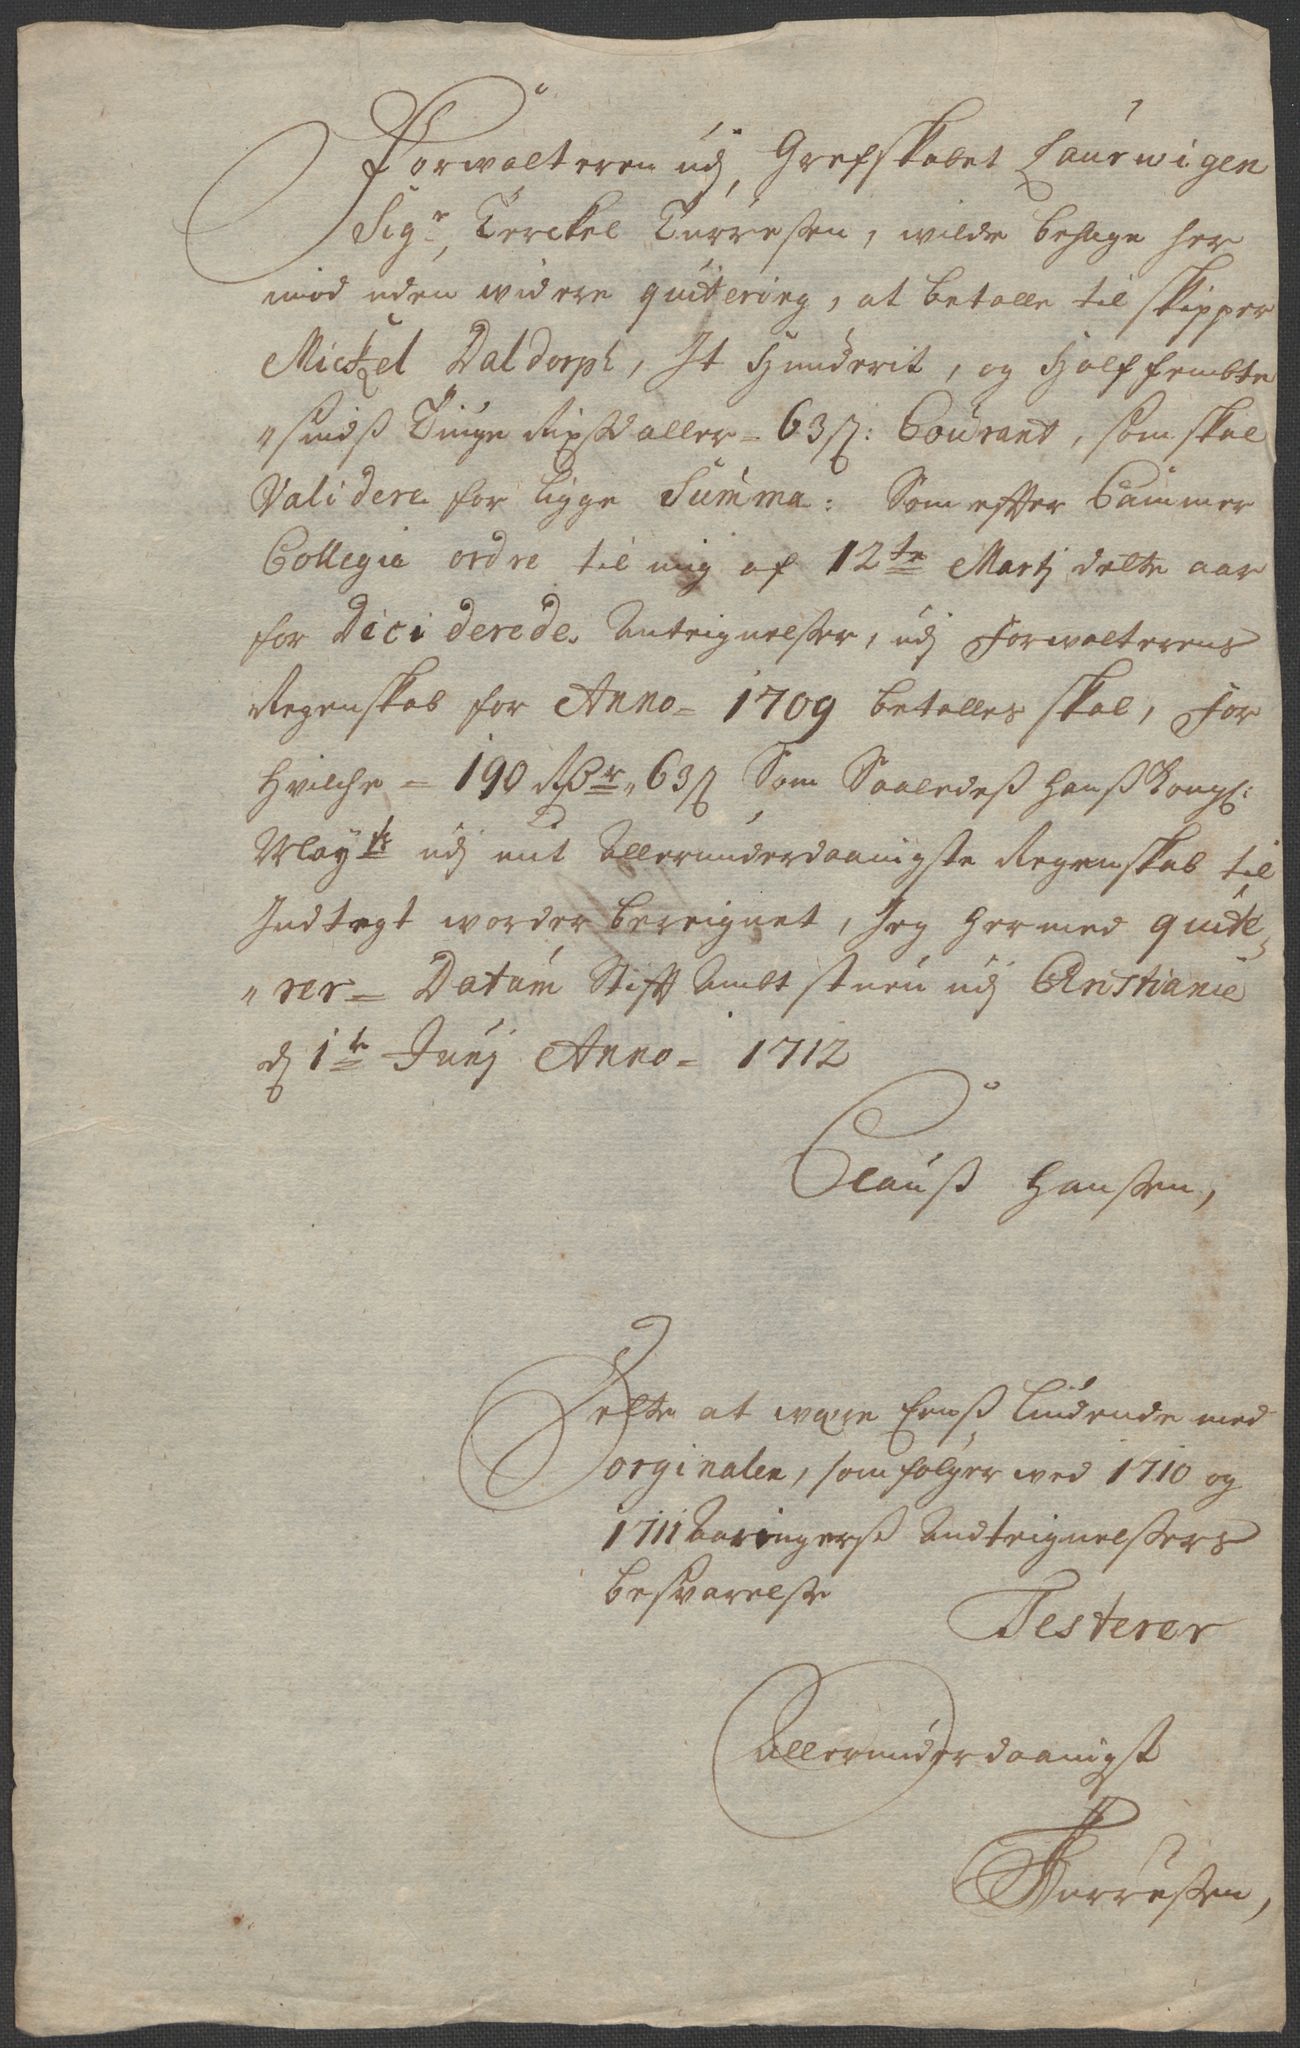 Forwalteren udj, Grefskabet Laurwigen
Sigr. Terckel Turresen, wilde behage her
imod uden widere quitering, at betalle til skipper
Mickel Daldorph, It Hunderit, og Half fembte
"sinds Tiuge Rixdaller = 63 s: Courant, som skal
Validere for ligge Summa: Som effter Cammer
Collegie ordre til mig af 12te Martj dette aar
for Diciderede Anteignelser, udj Forwalterens
Regenskab for Anno = 1709 betalles skal, For
hvilche = 190 Rdr. 63 s Som Saaledeß Hanß Kongl:
Mayts udj mit Allerunderdaanigste Regenskab til
Indtegt worder bereignet, Jeg hermed quite-
"rer = Datum Stift Ambtstuen udj Christianie
d 1te Junj Anno = 1712
Clauß Hanssen,
Dette at were Eenß Liudende med
orginalen, som følger wed 1710 og
1711 Aaringerß Andteignelsers
besvarelse
Testerer
Allerunderdaanigst
TTurresen,